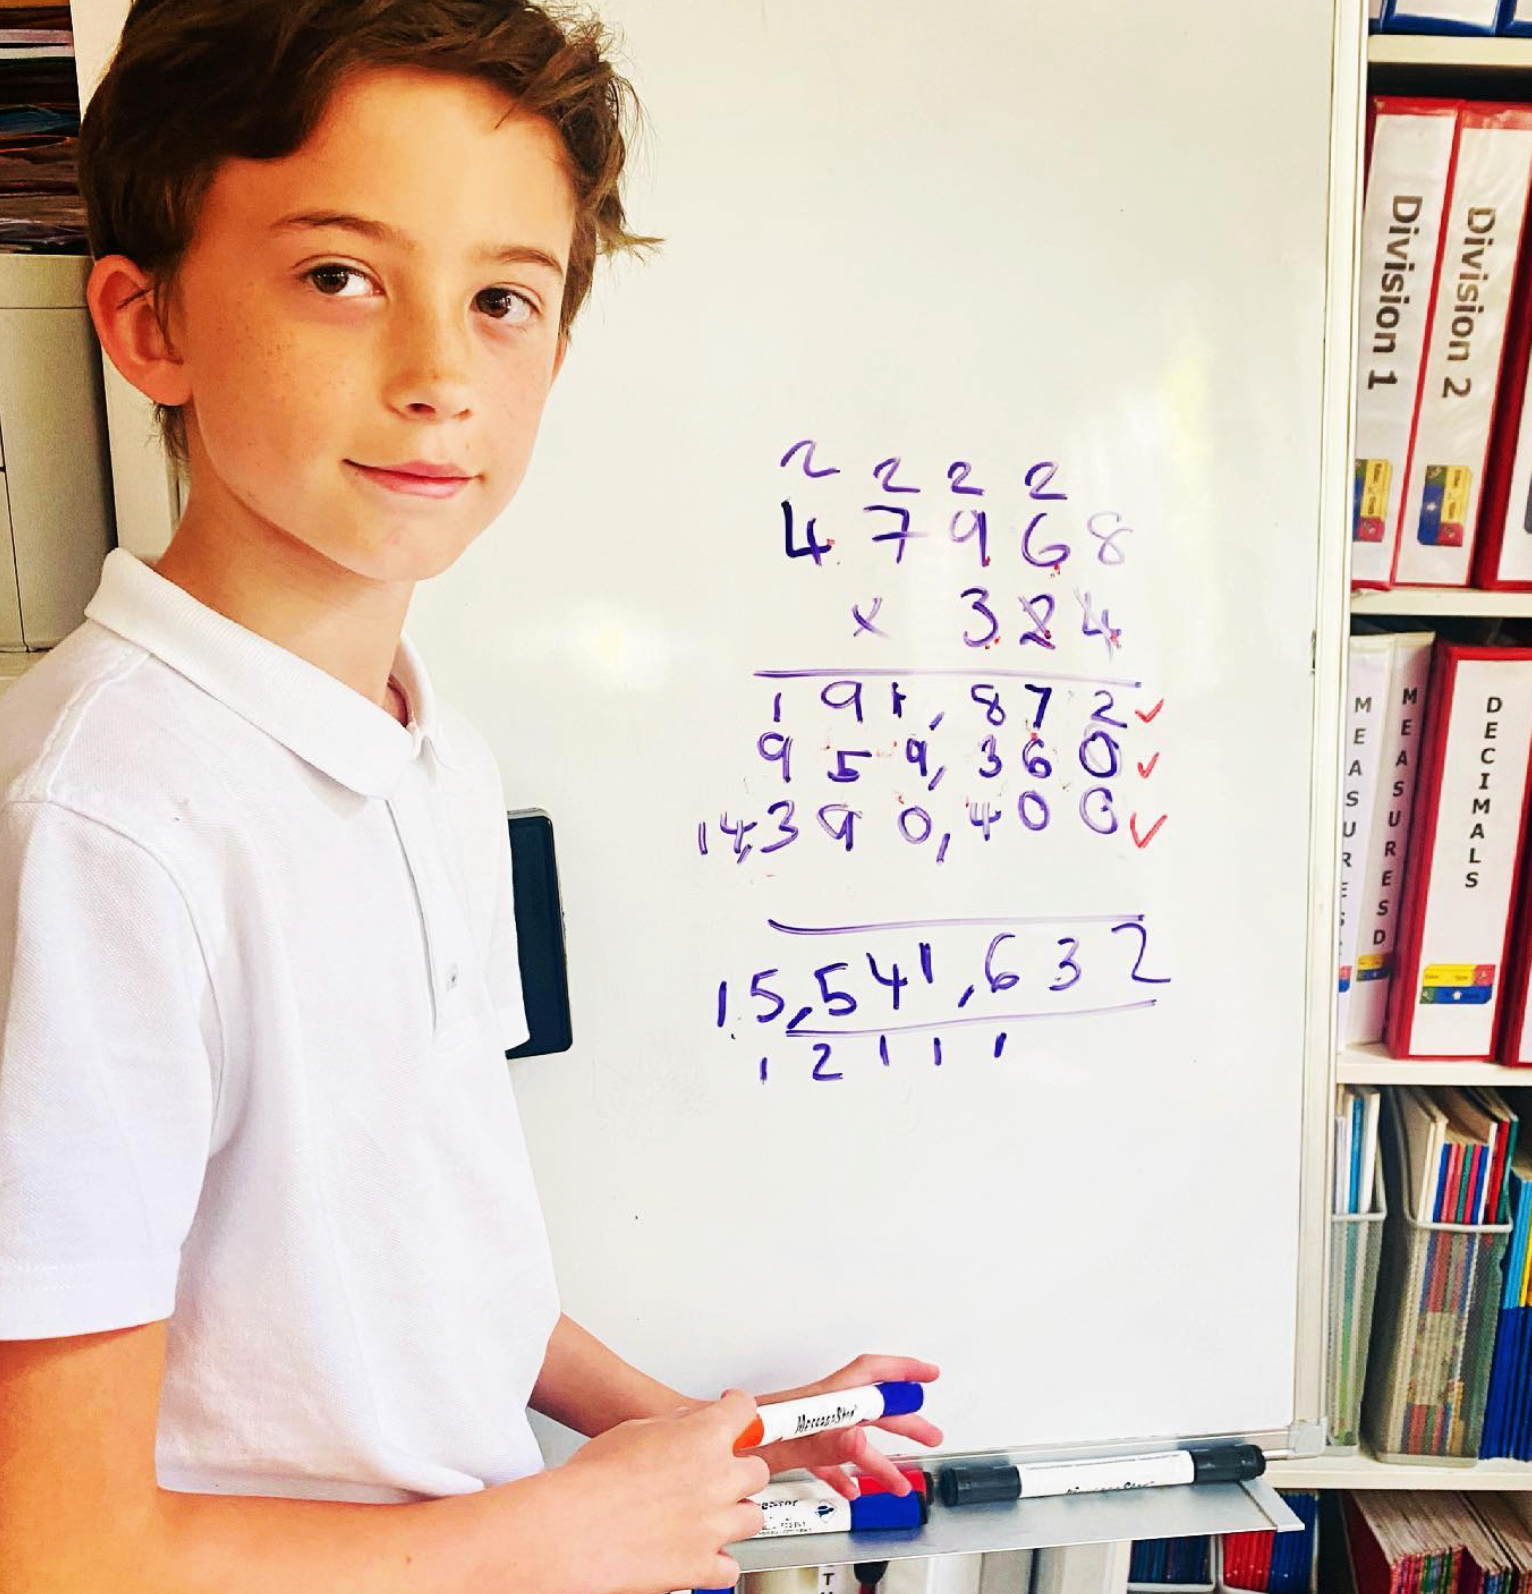 2 2 2 2
4 7 9 6 8
x 3 2 4
1 9 1, 8 7 2 ✓
9 5 9, 3 6 0 ✓
14,3 9 0, 4 0 0 ✓
15,541,632
1 2 1 1 1
Division 1
Division 2
MEASURES
MEASURES D
DECIMALS